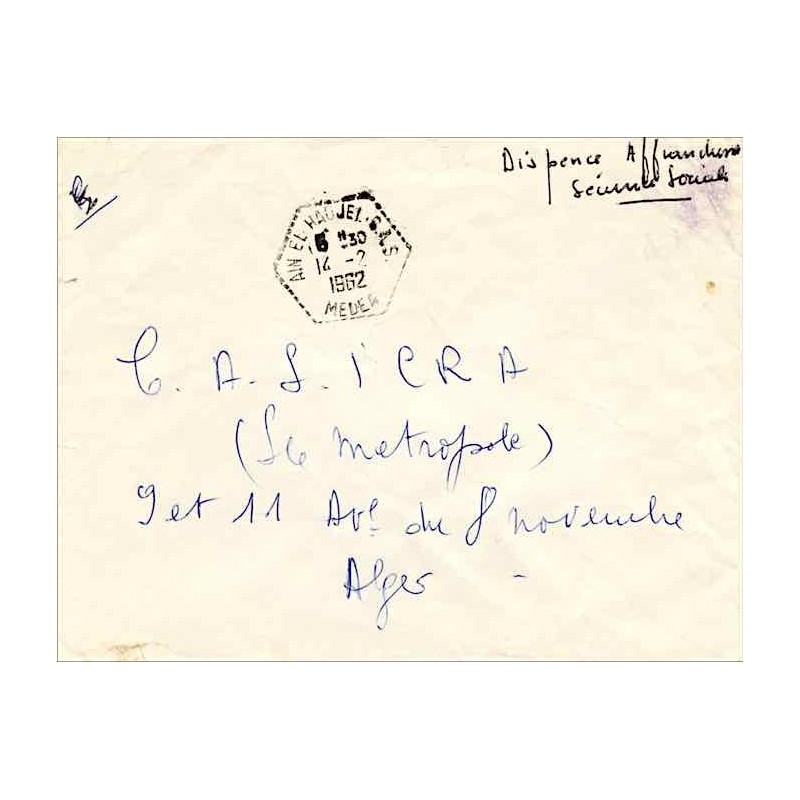 Dispence Affranchisse
Sécurité Sociale
AIN EL HADJEL-S.A.S.
14 -2
1962
MEDEA
C. A. S. I C R A
(Le Metropole)
9 et 11 Av. du 8 novembre
Alger -